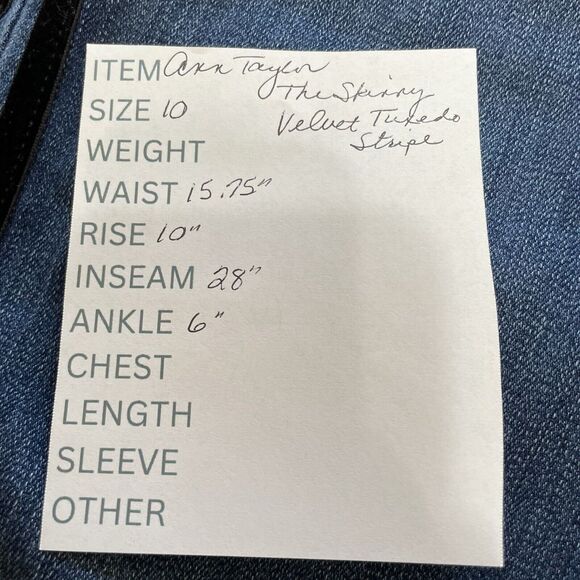 ITEM Ann Taylor
The Skinny
SIZE 10
Velvet Tuxedo
Stripe
WEIGHT
WAIST 15.75"
RISE 10"
INSEAM 28"
ANKLE 6"
CHEST
LENGTH
SLEEVE
OTHER